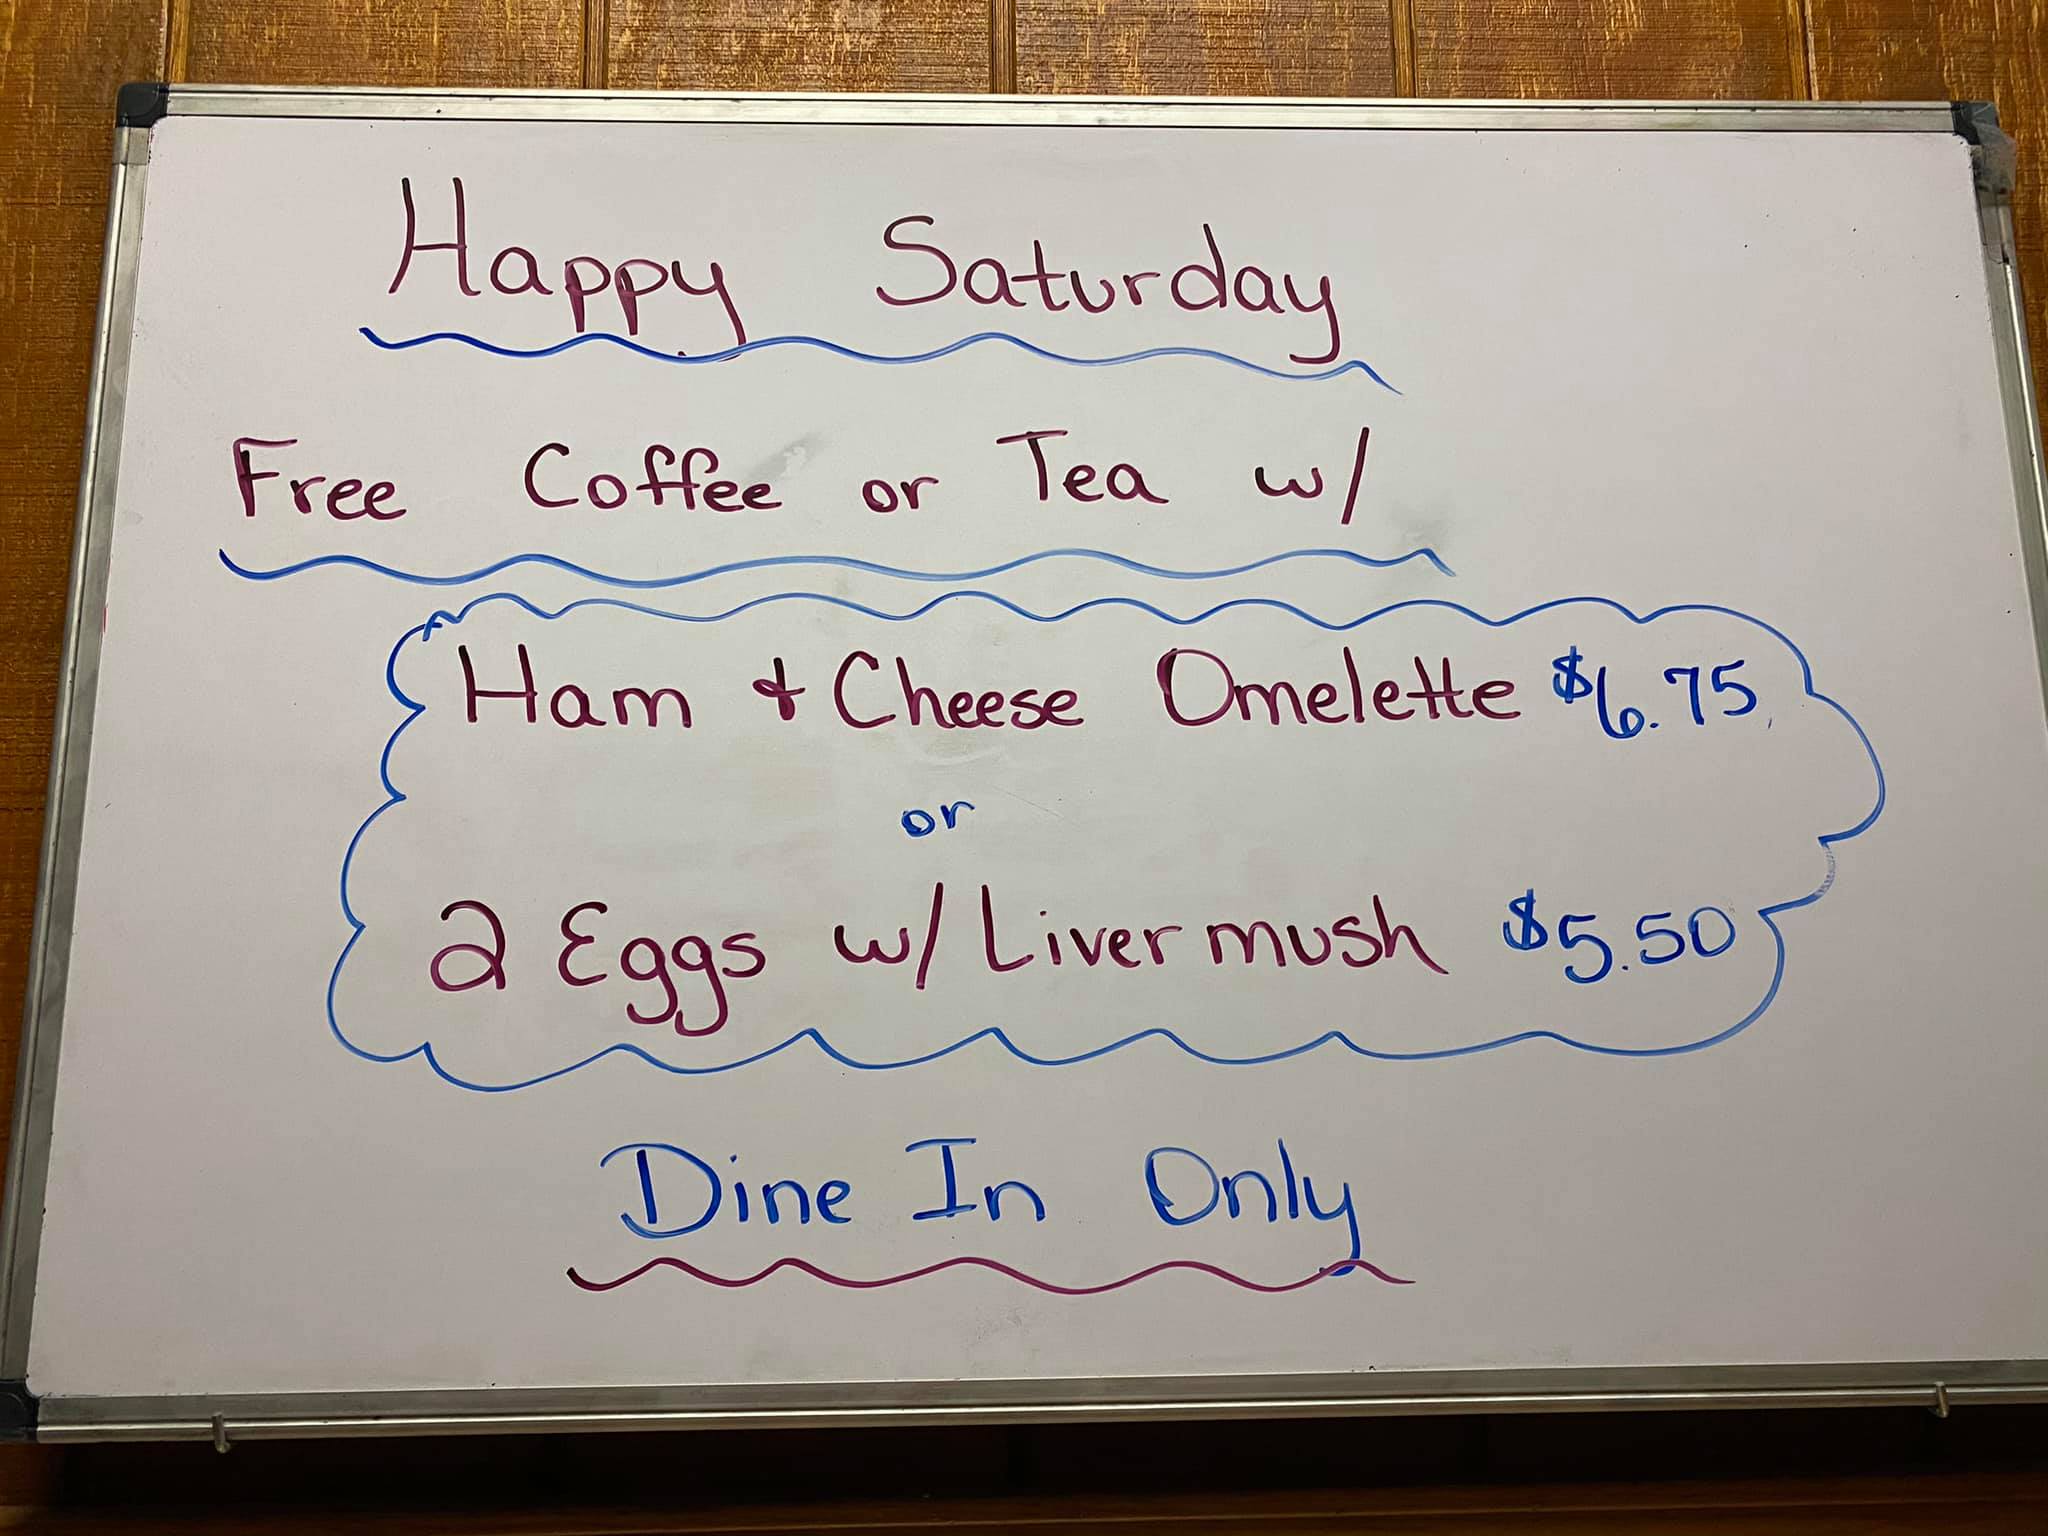 Happy Saturday
Free Coffee or Tea w/
Ham & Cheese Omelette $6.75
or
2 Eggs w/ Liver mush $5.50
Dine In Only